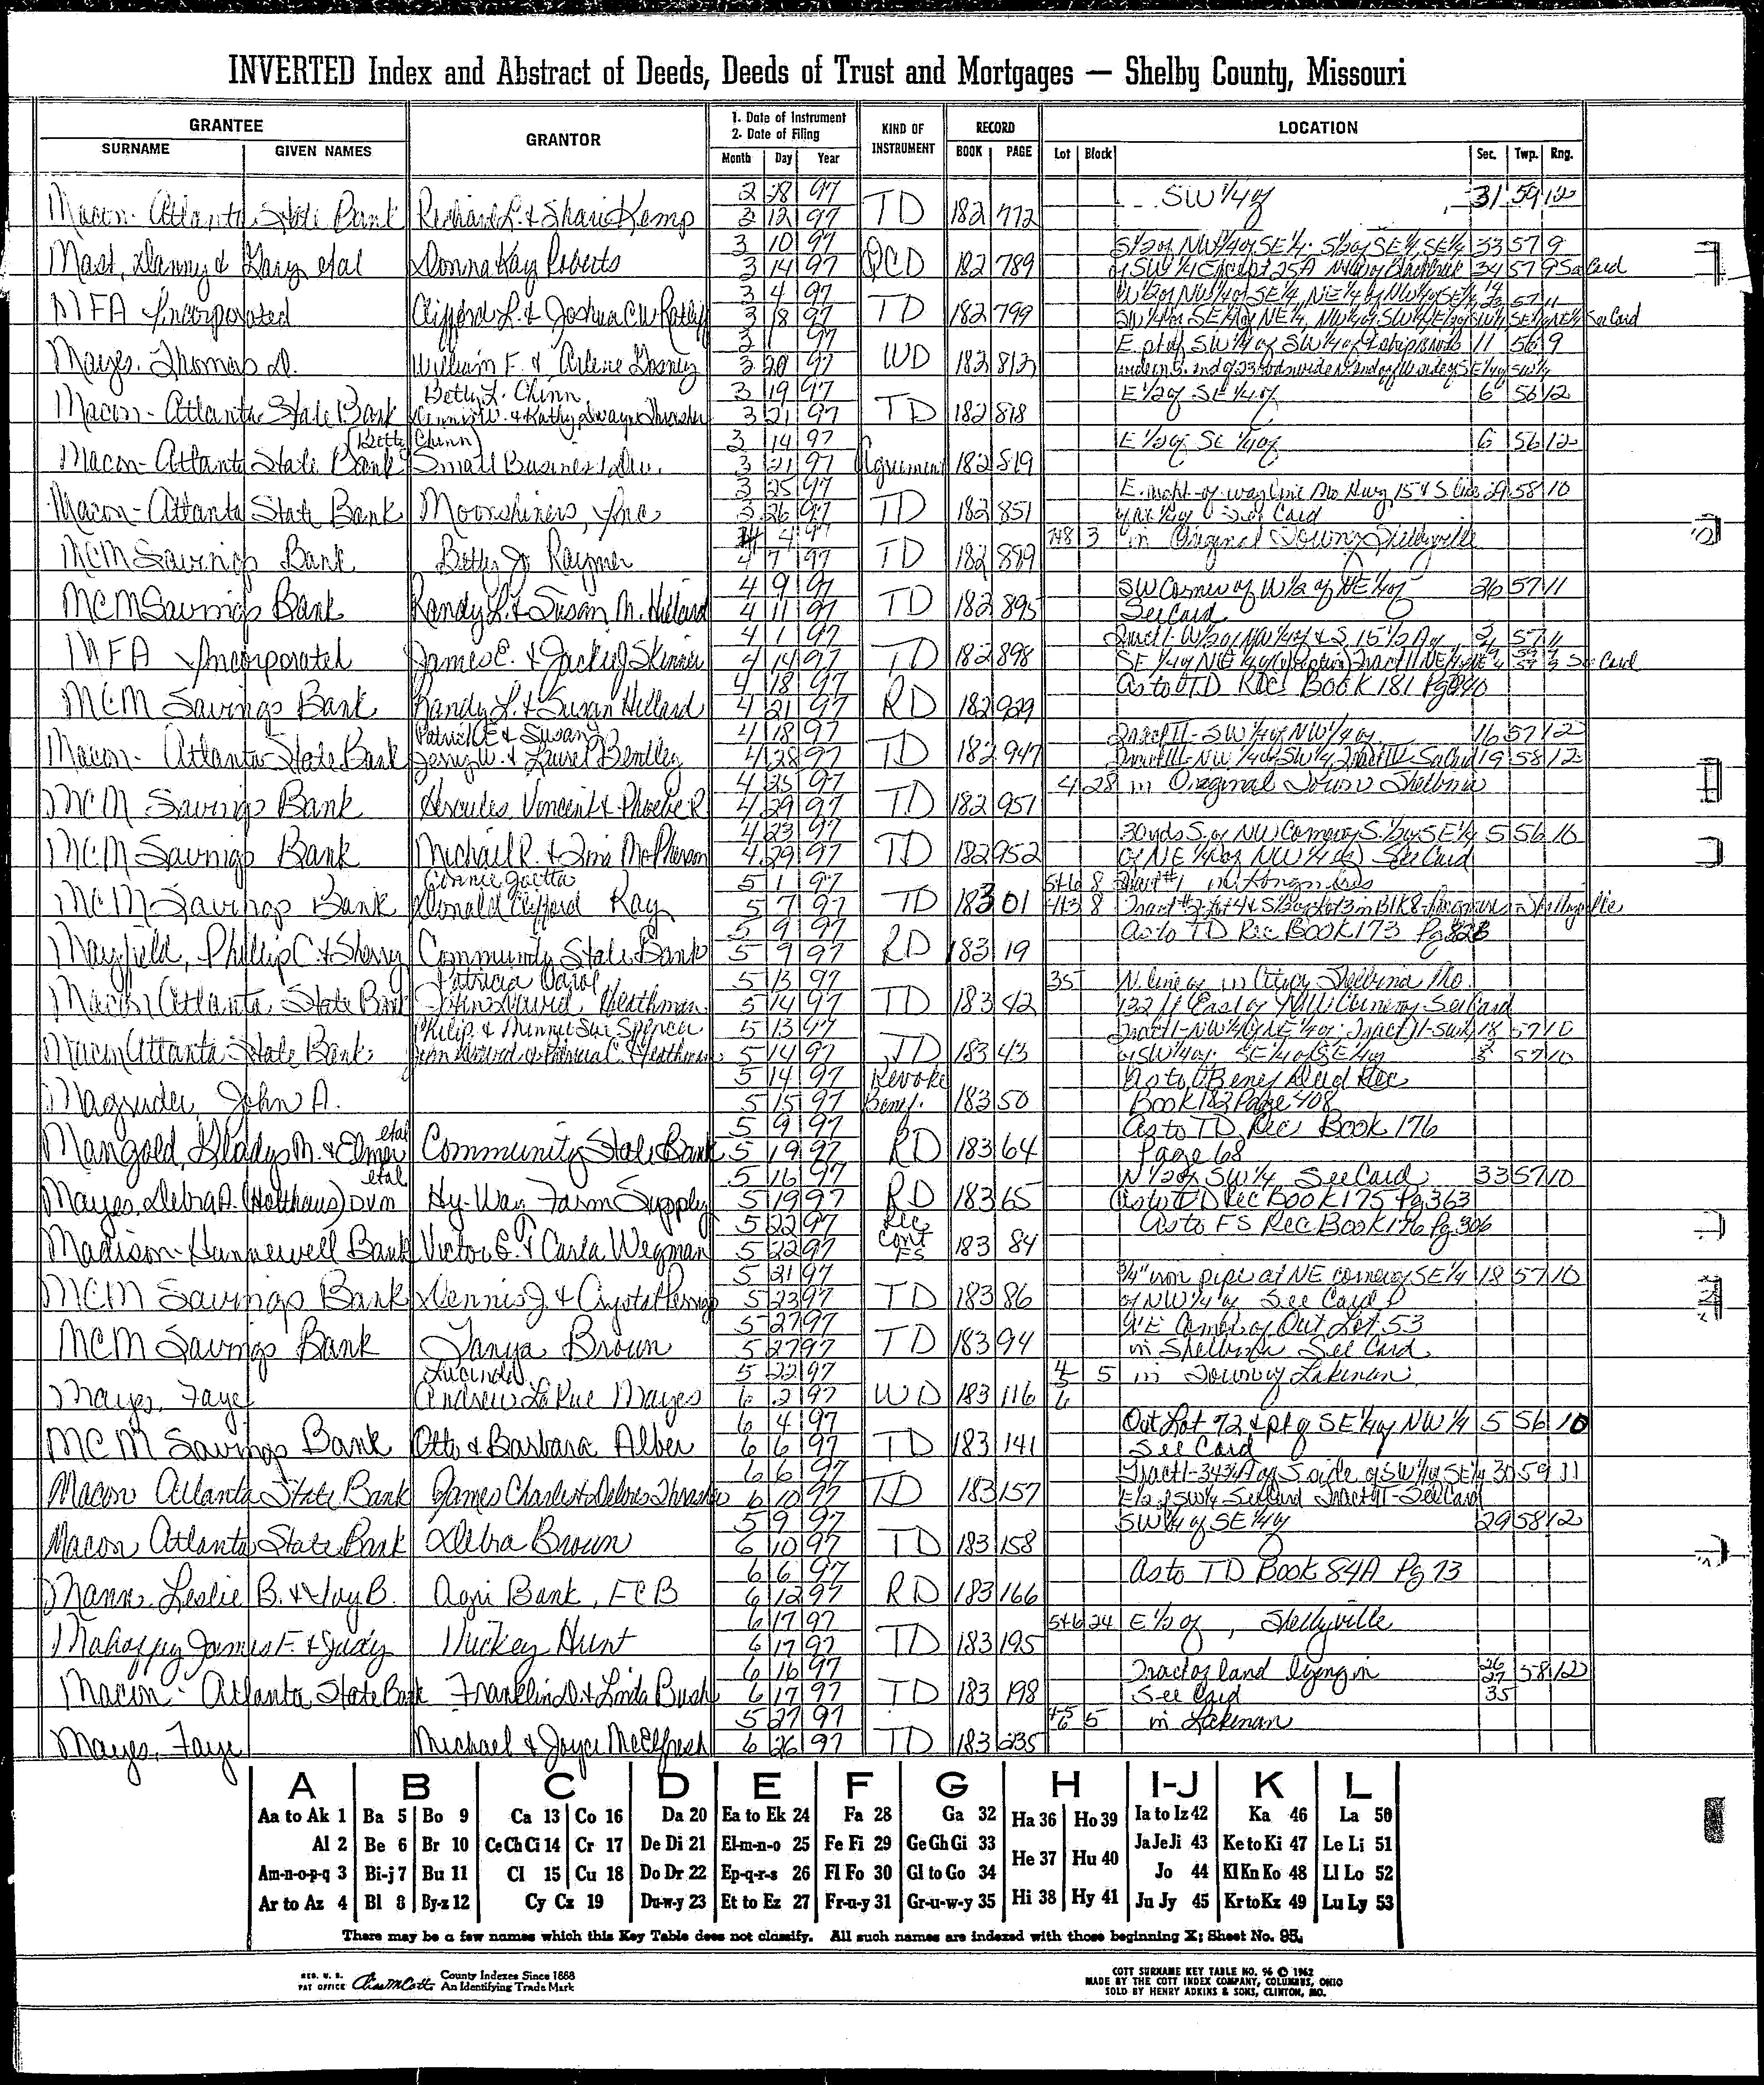 INVERTED Index and Abstract of Deeds, Deeds of Trust and Mortgages — Shelby County, Missouri
GRANTEE GRANTOR 1. Date of Instrument 2. Date of Filing KIND OF INSTRUMENT RECORD LOCATION
SURNAME GIVEN NAMES Month Day Year BOOK PAGE Lot Block Sec. Twp. Rng.
2 28 97 SW 1/4 of 31 59 12
Macon-Atlanta State Bank Richard L. & Shari Kemp 3 12 97 TD 182 772
3 10 97 S1/2 of NW1/4 of SE1/4. S1/2 of SE1/4 SE1/4 33 57 9
Mast, Danny & Gary etal Donna Kay Roberts 3 14 97 QCD 182 789 of SW 1/4 Except 25A 34 57 9 See Card
3 4 97 W1/2 of NW1/4 of SE1/4, NE1/4 of NW1/4 of SE1/4
MFA Incorporated Clifford L. & Joshua C.W. Ratliff 3 18 97 TD 182 799 SW 1/4 of SE1/4 of NE1/4, See Card
3 1 97 E. pt of SW 1/4 of SW 1/4 of 11 56 9
Mayes, Thomas D. William F. & Arlene Gosney 3 20 97 WD 182 813
Betty L. Chinn 3 19 97 E 1/2 of SE 1/4 of 6 56 12
Macon-Atlanta State Bank Dennis W. & Kathy Swayn Thrasher 3 21 97 TD 182 818
(Betty Chinn) 3 14 97 E 1/2 of SE 1/4 of 6 56 12
Macon-Atlanta State Bank Small Business Adm. 3 21 97 Agreement 182 819
3 25 97 E. right-of-way line Mo Hwy 15 & S line 29 58 10
Macon-Atlanta State Bank Moonshiners, Inc 3 26 97 TD 182 851 See Card
4 4 97 7&8 3 in Original Town of Shelbyville
MCM Savings Bank Betty Jo Raymer 4 7 97 TD 182 889
4 9 97 SW Corner of W 1/2 of NE 1/4 of 26 57 11
MCM Savings Bank Randy L. & Susan M. Hillard 4 11 97 TD 182 895 See Card
4 1 97 Tract I-W1/2 of NW 1/4 of & S. 15 1/2 A of
MFA Incorporated James E. & Jacky J Skinner 4 14 97 TD 182 898 SE 1/4 of NE 1/4 of See Card
4 18 97 As to TD Rec Book 181 Pg
MCM Savings Bank Randy L. & Susan Hillard 4 21 97 RD 182 929
Patrick E & Susan 4 18 97 Tract II-SW 1/4 of NW 1/4 of 16 57 12
Macon-Atlanta State Bank Jerry W. & Laurel Bentley 4 28 97 TD 182 947 Tract III-NW 1/4 of SW 1/4 See Card 19 58 12
4 25 97 4 28 in Original Town Shelbina
MCM Savings Bank Hercules, Vincent & Phoebe R 4 29 97 TD 182 951
4 23 97 30 yds S. of NW Corner of S. 1/2 of SE 1/4 5 56 10
MCM Savings Bank Michael R. & Tina McPherson 4 29 97 TD 182 952 of NE 1/4 of NW 1/4 of See Card
Connie Goetta 5 1 97 5&6 8 Tract #1
MCM Savings Bank Donald Clifford Kay 5 7 97 TD 183 01 4&3 8 Shelbyville
5 9 97 As to TD Rec Book 173 Pg
Mayfield, Phillip C. & Sherry Community State Bank 5 9 97 RD 183 19
Patricia Carol 5 13 97 35 N. line of in City of Shelbina Mo
Macon Atlanta State Bank John David Heathman 5 14 97 TD 183 42 132 ft East of NW Corner of See Card
Philip & Minnie Sue Spencer 5 13 97 Tract I-NW 1/4 of NE 1/4 of. Tract II-SW1/4 18 57 10
Macon Atlanta State Bank John David & Patricia C. Heathman 5 14 97 TD 183 43 of SW 1/4 of. SE 1/4 of SE 1/4 of 57 10
5 14 97 Revoke As to Benef Deed Rec
Magruder, John A. 5 15 97 Benef. 183 50 Book 182 Page 408
etal 5 9 97 As to TD Rec Book 176
Mangold, Gladys M. & Elmer Community State Bank 5 19 97 RD 183 64 Page 68
etal 5 16 97 N 1/2 of SW 1/4 See Card 33 57 10
Mayes, Debra A. (Holthaus) DVM Hy-Way Farm Supply 5 19 97 RD 183 65 As to TD Rec Book 175 Pg 363
5 22 97 Rec As to FS Rec Book 176 Pg 306
Madison-Hunnewell Bank Victor G. & Carla Wegman 5 22 97 Cont FS 183 84
5 21 97 3/4" iron pipe at NE corner of SE 1/4 18 57 10
MCM Savings Bank Dennis J. & Crystal Perry 5 23 97 TD 183 86 of NW 1/4 of See Card
5 27 97 NE Corner of Out Lot 53
MCM Savings Bank Tanya Brown 5 27 97 TD 183 94 in Shelbina See Card
Lucinda 5 22 97 4 5 5 in Town of Lakenan
Mayes, Faye Andrew LaRue Mayes 6 2 97 WD 183 116 6
6 4 97 Out Lot 72 & pt of SE 1/4 of NW 1/4 5 56 10
MCM Savings Bank Otto & Barbara Alber 6 6 97 TD 183 141 See Card
6 6 97 Tract I-34 A of S side of SW 1/4 of SE 1/4 30 59 11
Macon Atlanta State Bank James Charles & Delores Thrasher 6 10 97 TD 183 157 E 1/2 of SW 1/4 See Card Tract II-See Card
5 9 97 SW 1/4 of SE 1/4 of 29 58 12
Macon Atlanta State Bank Debra Brown 6 10 97 TD 183 158
6 6 97 As to TD Book 84A Pg 73
Mann, Leslie B. & Joy B. Agri Bank, FCB 6 12 97 RD 183 166
6 17 97 5&6 24 E 1/2 of , Shelbyville
Mahaffey James F. & Judy Huckey Hunt 6 17 97 TD 183 195
6 16 97 Tract of land lying in 26 27 58 12
Macon-Atlanta State Bank Franklin D. & Linda Bush 6 17 97 TD 183 198 See Card 35
5 27 97 4-5 6 5 in Lakenan
Mayes, Faye Michael & Joyce McElfresh 6 26 97 TD 183 235
A B C D E F G H I-J K L
Aa to Ak 1 Ba 5 Bo 9 Ca 13 Co 16 Da 20 Ea to Ek 24 Fa 28 Ga 32 Ha 36 Ho 39 Ia to Iz 42 Ka 46 La 50
Al 2 Be 6 Br 10 Ce Ch Ci 14 Cr 17 De Di 21 El-m-n-o 25 Fe Fi 29 Ge Gh Gi 33 He 37 Hu 40 Ja Je Ji 43 Ke to Ki 47 Le Li 51
Am-n-o-p-q 3 Bi-j 7 Bu 11 Cl 15 Cu 18 Do Dr 22 Ep-q-r-s 26 Fl Fo 30 Gl to Go 34 Jo 44 Kl Kn Ko 48 Ll Lo 52
Ar to Az 4 Bl 8 By-z 12 Cy Cz 19 Du-w-y 23 Et to Ez 27 Fr-u-y 31 Gr-u-w-y 35 Hi 38 Hy 41 Ju Jy 45 Kr to Kz 49 Lu Ly 53
There may be a few names which this Key Table does not classify. All such names are indexed with those beginning X; Sheet No. 95.
REG. U. S. PAT OFFICE County Indexes Since 1888 An Identifying Trade Mark
COTT SURNAME KEY TABLE NO. 96 © 1962
MADE BY THE COTT INDEX COMPANY, COLUMBUS, OHIO
SOLD BY HENRY ADKINS & SONS, CLINTON, MO.